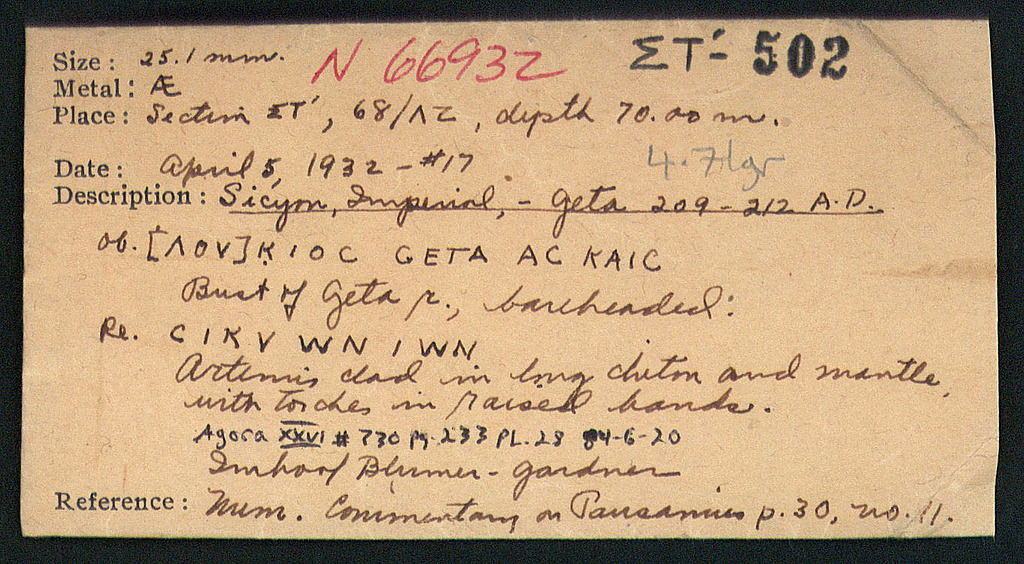 Size : 25.1 mm. N 66932 ΣΤ´- 502
Metal : Æ
Place : Section ΣΤ´, 68/ΛΖ, depth 70.00 m.
Date : April 5, 1932 - #17 4.71gr
Description : Sicyon, Imperial, - Geta 209-212 A.D.
Ob. [ΛΟV]ΚΙΟC GETA AC KAIC
Bust of Geta r., bareheaded:
Re. CIKVWNIWN
Artemis clad in long chiton and mantle,
with torches in raised hands.
Agora XXVI # 730 Pg. 233 PL. 28 84-6-20
Imhoof Blumer - Gardner
Reference : Num. Commentary on Pausanias p. 30, no. 11.